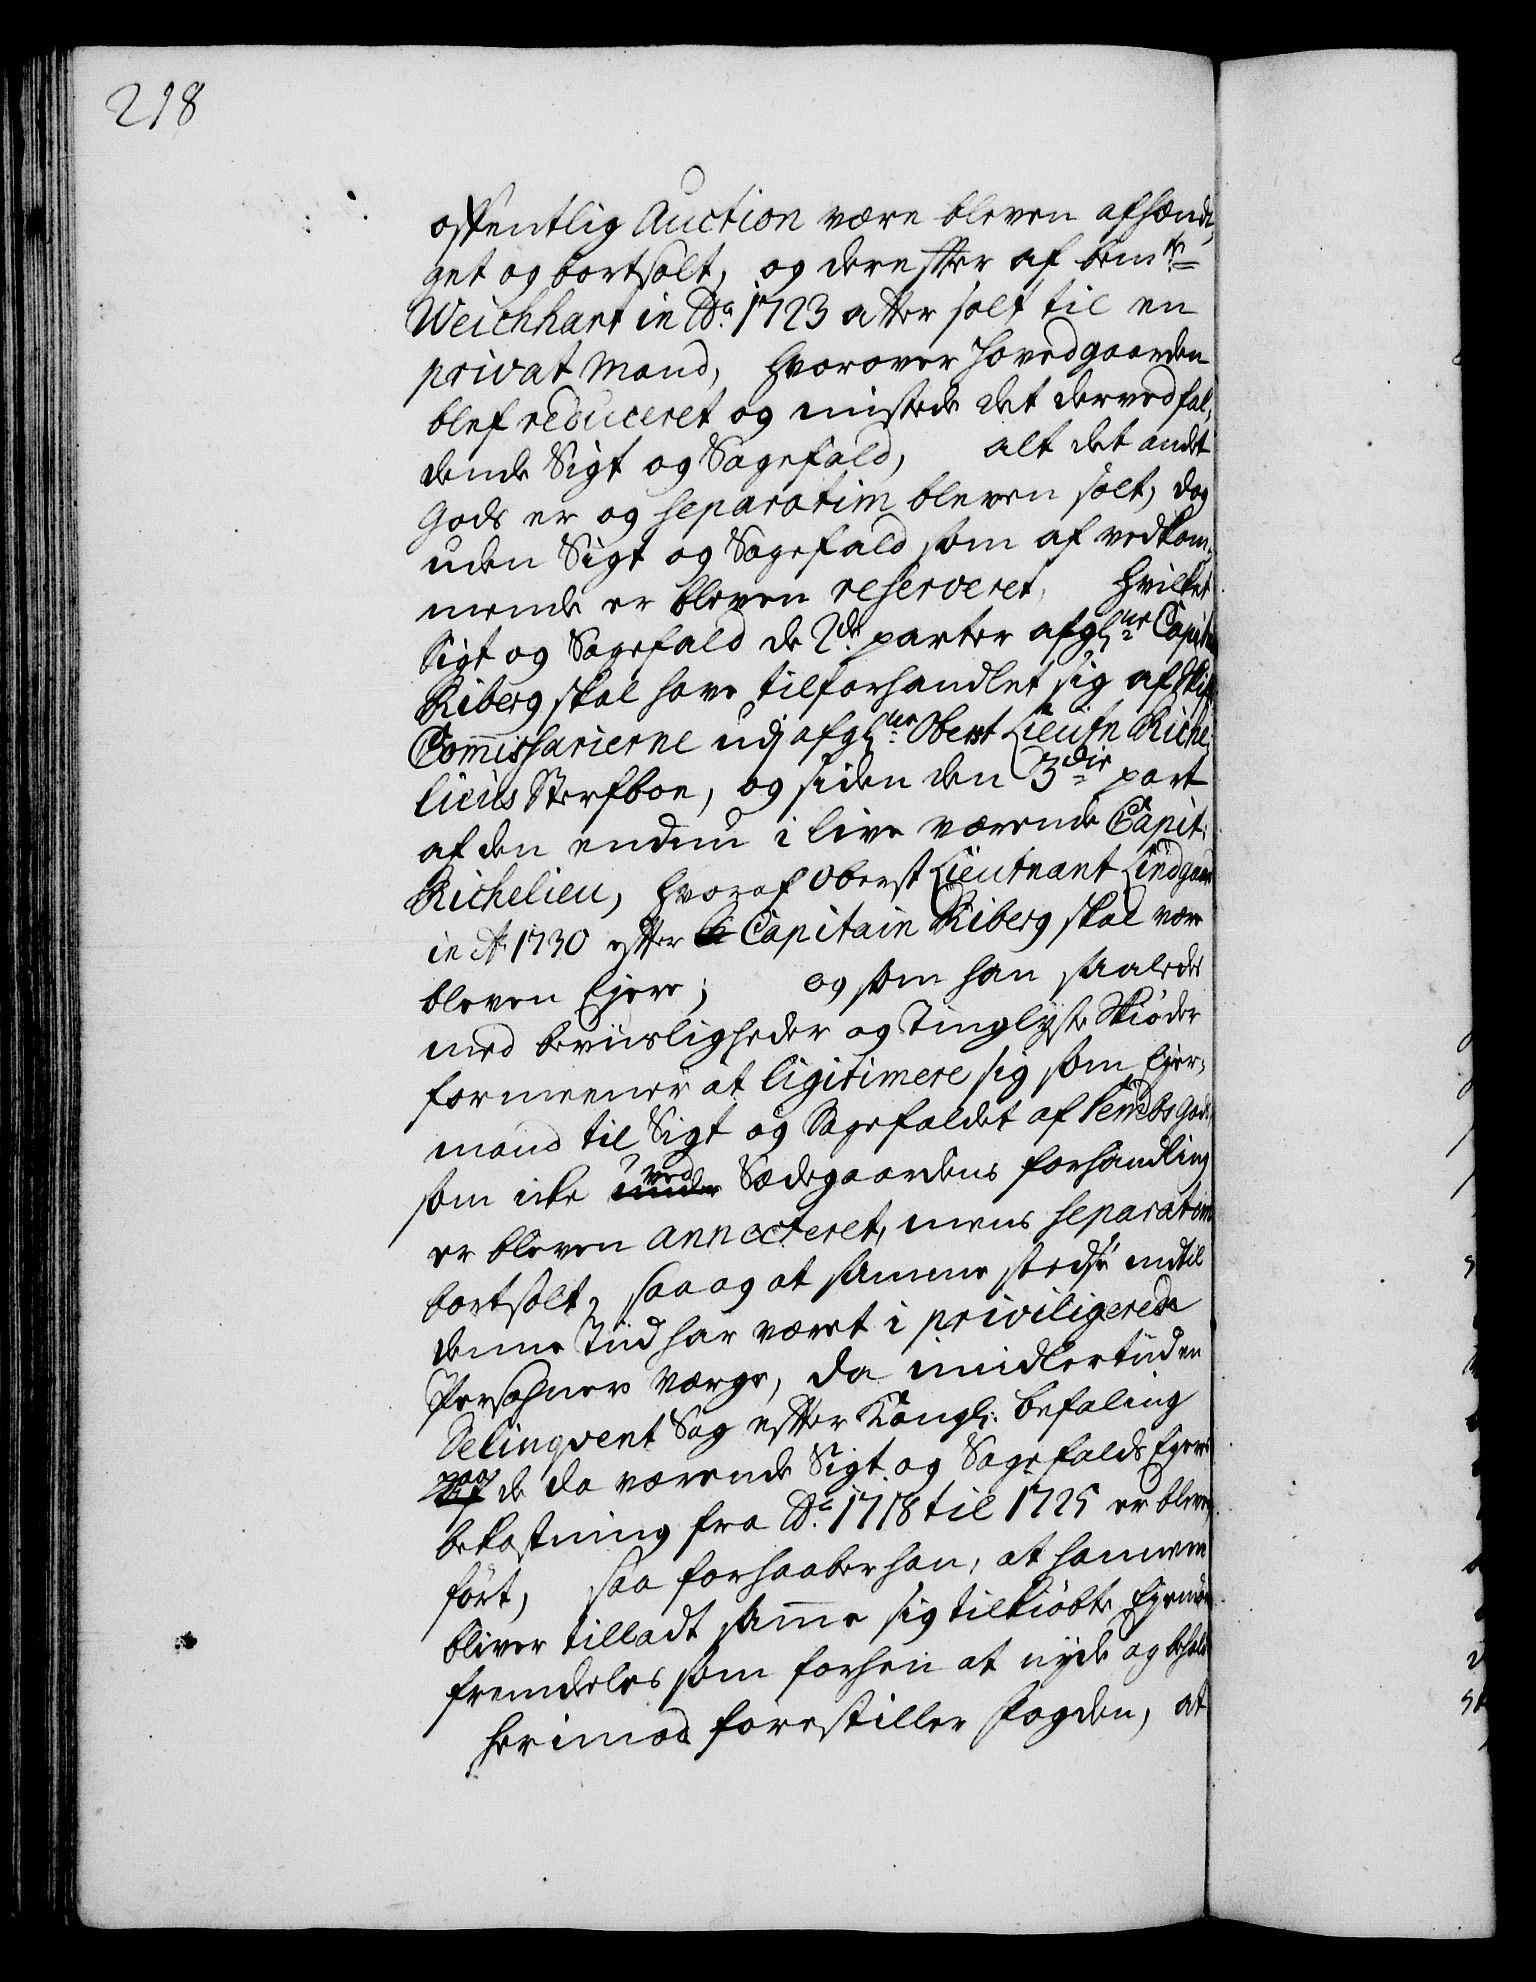 218
offentlig Auction være bleven afhænd¬
get og bortsolt, og derefter af bem.te
Weichhart in Ao. 1723 atter solt til en
privat Mand, hvorover Hovedgaarden
blef reduceret og mistede det derved fal¬
dende Sigt og Sagefald, alt det andet
Gods er og separatim bleven solt, dog
uden Sigt og Sagefald som af vedkom¬
mende er bleven reserveret, hvilket
Sigt og Sagefald de 2de parter afgl.ne Capit
Riberg skal have tilforhandlet sig af Skift
Commissarierne udj afgl.ne Oberst Lieutn Riche
lieus Sterfboe, og siden den 3die part
af den endnu i live værende Capit:
Richelieu, hvoraf Oberst Lieutnant Lindgaard
in Ao. 1730 efter Capitain Riberg skal være
bleven Ejere; og som han saaledes
med beviisligheder og Tinglyste Skiøder
formeener at ligitimere sig som Ejer¬
mand til Sigt og Sagefaldet af Gods
som icke under ved Sædegaardens forhandling
er bleven annecteret, mens separatim
bortsolt, saa og at samme stedse indtil
denne Tiid har været i priviligerede
Persohners Værge, da imidlertiid en
Delinqvent Sag efter Kongl: befaling
paa de da værende Sigt og Sagefalds Ejeres
bekostning fra Ao. 1718 til 1725 er bleven
ført, saa forhaaber han, at hannem
bliver tilladt samme sig tilkiøbte Ejendom
fremdeles som forhen at nyde og beholde
herimod forestiller Fogden, at